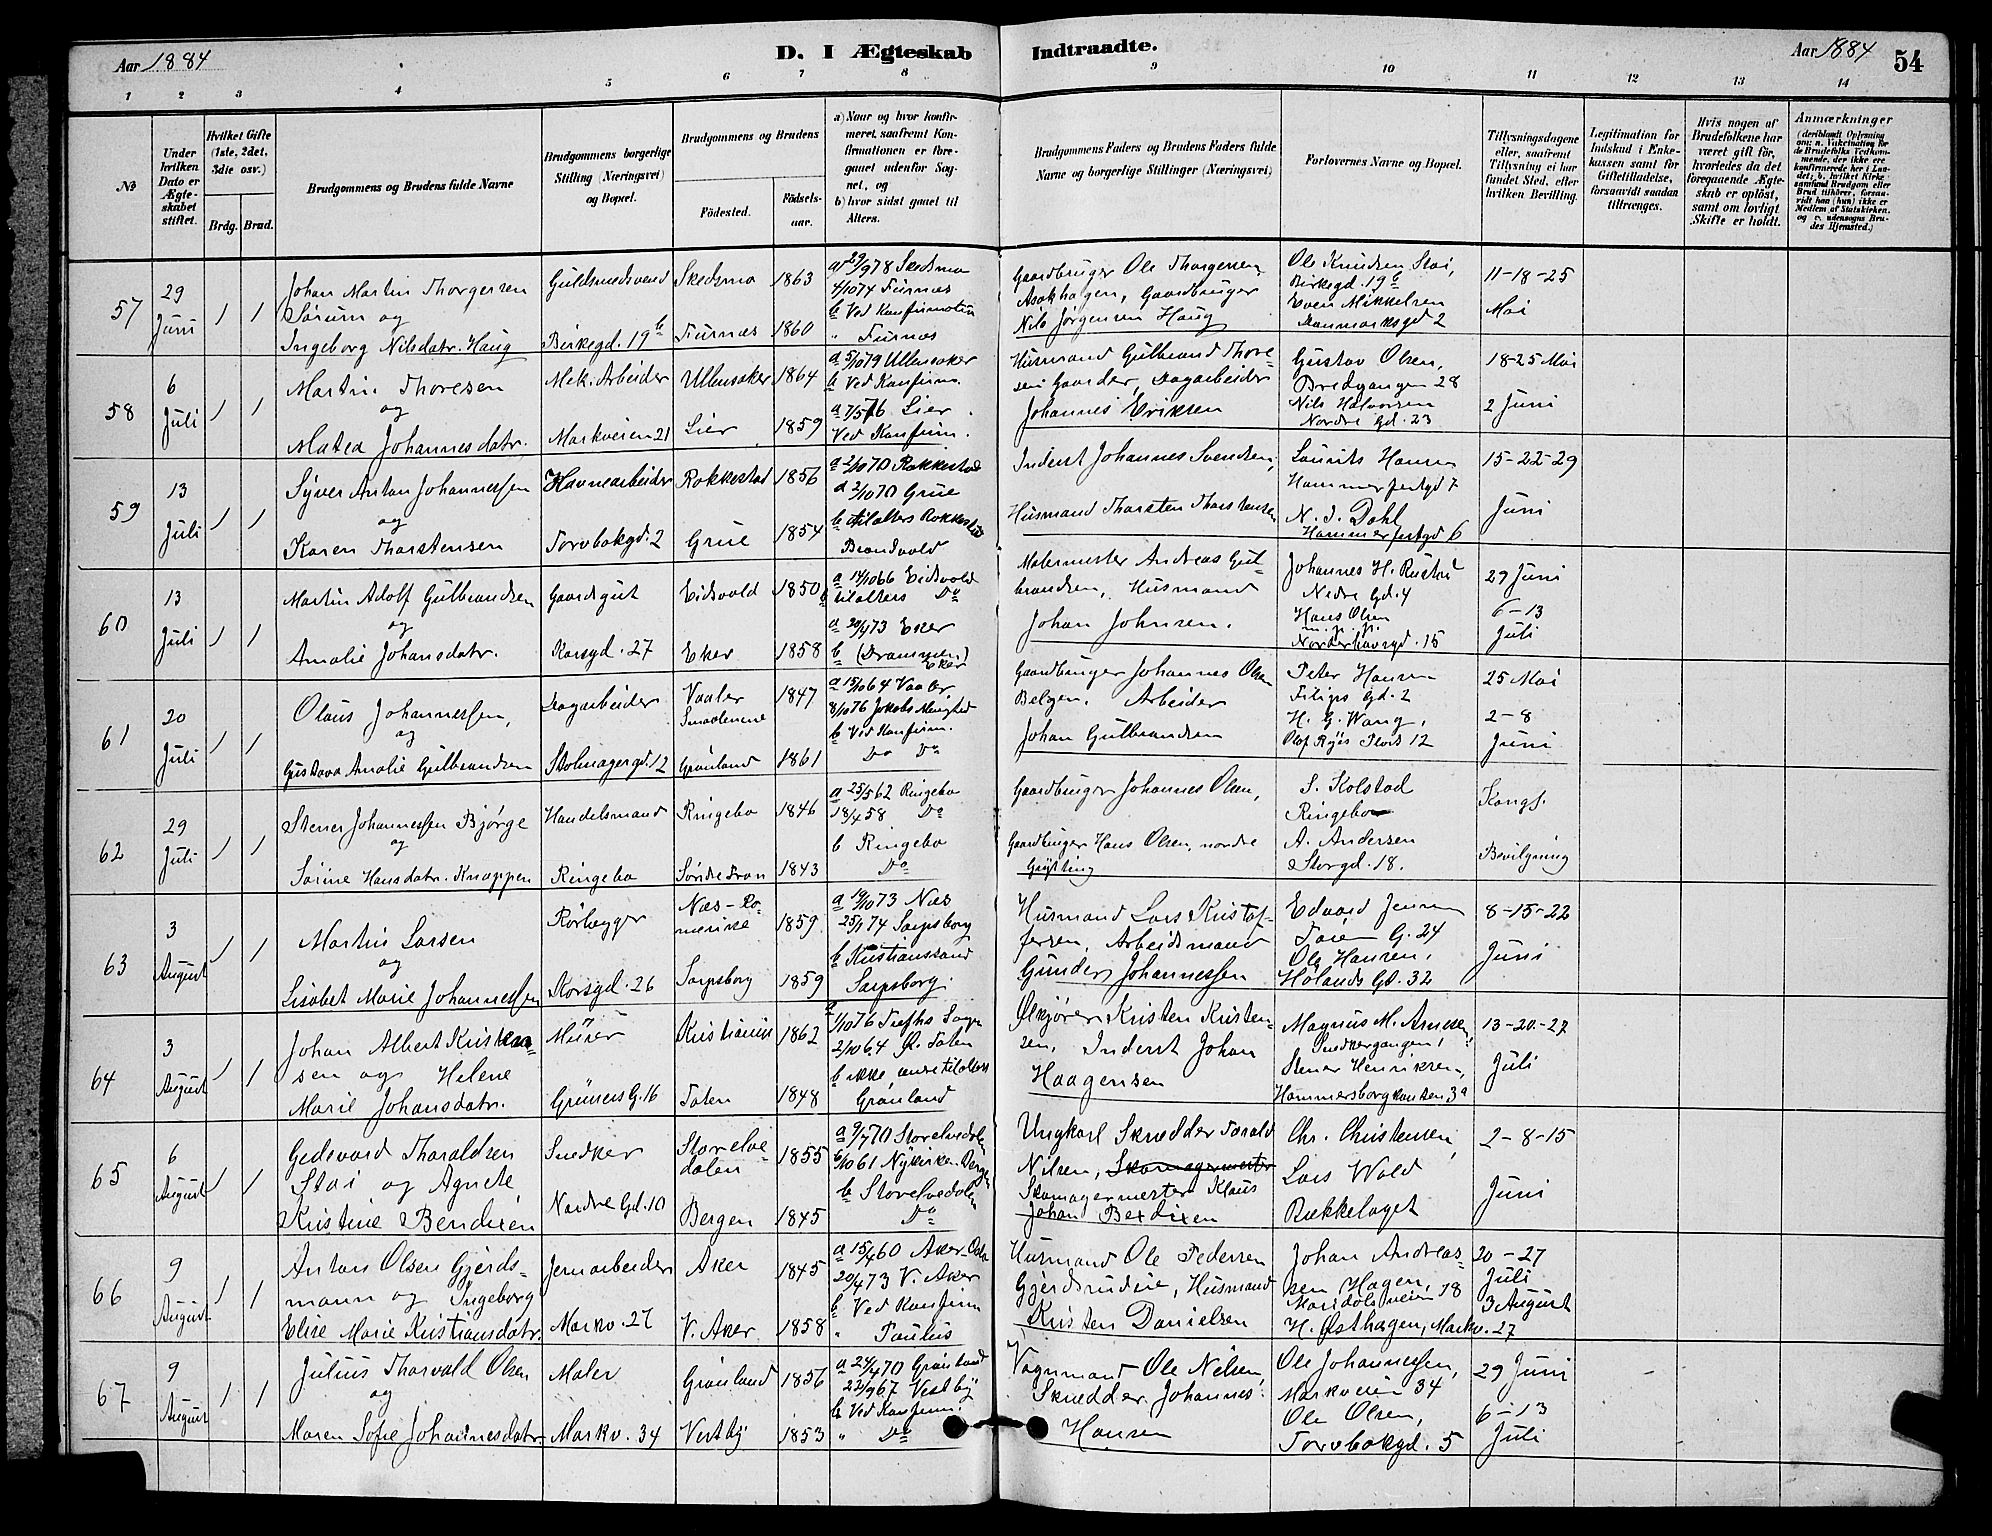 Aar 1884
D. I Ægteskab Indtraadte.
Aar 1884
54
1 2 3 4 5 6 7 8 9 10 11 12 13 14
No
Under hvilken Dato er Ægteskabet stiftet.
Hvilket Gifte (1ste, 2det, 3die osv.)
Brdg. Brud.
Brudgommens og Brudens fulde Navne
Brudgommens borgerlige Stilling (Næringsvei) og Bopæl.
Brudgommens og Brudens
Födested.
Födsels-aar.
a) Naar og hvor konfirmeret, saafremt Konfirmationen er foregaaet udenfor Sognet, og
b) hvor sidst gaaet til Alters.
Brudgommens Faders og Brudens Faders fulde Navne og borgerlige Stillinger (Næringsvei)
Forlovernes Navne og Bopæl.
Tillysningsdagene eller, saafremt Tillysning ei har fundet Sted, efter hvilken Bevilling.
Legitimation for Indskud i Enkekassen samt for Giftetilladelse, forsaavidt saadan tiltrænges.
Hvis nogen af Brudefolkene har været gift för, hvorledes da det foregaaende Ægteskab er oplöst, samt om lovligt Skifte er holdt.
Anmærkninger
57
29 Juni
1 1
Johan Martin Thorgersen
Sørum og
Ingeborg Nilsdatr. Haug
Guldsmedsvend
Birkegd. 19b
Skedsmo 1863
Furnæs 1860
a 29/9 78 Skedsmo
4/10 74 Furnæs
b Ved Konfirmation
" Furnæs
Gaardbruger Ole Thorgersen
Asakhagen, Gaardbruger
Nils Jørgensen Haug
Ole Knudsen Stai,
Birkegd. 19b
Even Mikkelsen
Danmarksgd 2
11-18-25
Mai
58
6 Juli
1 1
Martin Thoresen
og
Matea Johannesdatr.
Mek. Arbeider
Markveien 21
Ullensaker 1864
Lier 1859
a 5/10 79 Ullensaker
b Ved Konfirm.
a 7/5 76 Lier
Ved Konfirm.
Husmand Gulbrand Thore-
sen Gaarder, Dagarbeider
Johannes Eriksen
Gustav Olsen,
Bredgangen 28
Nils Halvorsen
Nordre Gd. 23
18-25 Mai
2 Juni
59
13 Juli
1 1
Syver Anton Johannessen
og
Karen Thorstensen
Havnearbeider
Torvbakgd. 2
Rokkestad 1856
Grue 1854
a 2/10 70 Rokkestad
a 2/10 70 Grue
b tilalters Rokkestad
Brandvold
Inderst Johannes Svendsen,
Husmand Thorsten Thorstensen
Laurits Hansen
Hammerfestgd 7
N. J. Dahl
Hammerfestgd 6
15-22-29
Juni
60
13 Juli
1 1
Martin Adolf Gulbrandsen
og
Amalie Johansdatr.
Gaardsgut
Korsgd. 27
Eidsvold 1850
Eker 1858
a 14/10 66 Eidsvold
b tilalters Do
a 20/4 73 Eker
b (Drammen)
Eker
Malermester Andreas Gul-
brandsen, Husmand
Johan Johnsen.
Johannes H. Rustu
Nedre Gd. 4
Hans Olsen
m. p. p.
Norderhovsgd. 15
29 Juni
6-13
Juli
61
20 Juli
1 1
Olaus Johannessen,
og
Gustava Amalie Gulbrandsen
Dagarbeider
Stolmagergd. 12
Vaaler
Smaalenene 1847
Grønland 1861
a 15/10 64 Vaaler
8/10 76 Jakobs Menighed
b Ved Konfirm.
Do Do
Gaardbruger Johannes Olsen
Belgen. Arbeider
Johan Gulbrandsen
Peter Hansen
Filips Gd. 2
H. G. Wang,
Olaf Ryes Plads 12
25 Mai
2-8
Juni
62
29 Juli
1 1
Stener Johannessen Bjørge
og
Sørine Hansdatr. Knappen
Handelsmand
Ringebo
Ringebo 1846
Søndre Fron 1843
a 25/5 62 Ringebo
18/4 58 Do
b Ringebo
Do
Gaardbruger Johannes Olsen,
Gaardbruger Hans Olsen, nordre
S. Kolstad
Ringebo
A. Andersen
Storgd. 18.
Kongs.
Bevilgning
63
3 August
1 1
Martin Larsen
og
Lisabet Marie Johannessen
Rørlægger
Korsgd. 26
Næs-Ro-
merike 1859
Sarpsborg 1859
a 19/10 73 Næs
25/1 74 Sarpsborg
b Kristianssand
Sarpsborg
Husmand Lars Kristof-
fersen, Arbeidsmand
Gunder Johannessen
Edvard Jensen
Tøien G. 24
Ole Hansen,
Hølands Gd. 32
8-15-22
Juni
64
3 August
1 1
Johan Albert Kristen-
sen og Helene
Marie Johansdatr.
Murer
Grüners G. 16
Kristiania 1862
Toten 1848
a 1/10 76 Trefhs Sogn
2/10 64 Ø. Toten
b ikke været tilalters
Grønland
Ølkjører Kristen Kristen-
sen, Inderst Johan
Haagensen
Magnus M. Arnesen
Snedkergangen 1
Stener Henriksen,
Hammersborgkansen 3a
13-20-27
Juli
65
6 August
1 1
Gedevard Tharaldsen
Stai og Agnete
Kristine Bendixen
Snedker
Nordre Gd. 10
Storelve-
dalen 1855
Bergen 1845
a 9/7 70 Storelvedalen
6/10 61 Nykirken Bergen
b Storelvedalen
Do
Ungkarl Skrædder Tarald
Nilsen, Skomagermester
Skomagermester Klaus
Johan Bendixen
Chr. Christensen,
Lars Wold
Bækkelaget
2-8-15
Juni
66
9 August
1 1
Anton Olsen Gjerds-
mann og Ingeborg
Elise Marie Kristiansdatr.
Jernarbeider
Markv. 27
Aker 1845
V. Aker 1858
a 15/4 60 Aker-Oslo
20/4 73 V. Aker
b Ved Konfirm
" Paulus
Husmand Ole Pedersen
Gjerdsrudeie, Husmand
Kristen Danielsen
Johan Andreas-
sen Hagen,
Maridalsveien 18
H. Østhagen, Markv. 27
20-27
Juli
3 August
67
9 August
1 1
Julius Thorvald Olsen
og
Maren Sofie Johannesdatr.
Maler
Markv. 34
Grønland 1856
Vestby 1853
a 24/4 70 Grønland
22/9 67 Vestby
b Ved Konfirm.
" Do
Vognmand Ole Nilsen,
Skrædder Johannes
Hansen
Ole Johannessen,
Markveien 34
Ole Olsen,
Torvbakgd. 5
29 Juni
6-13
Juli